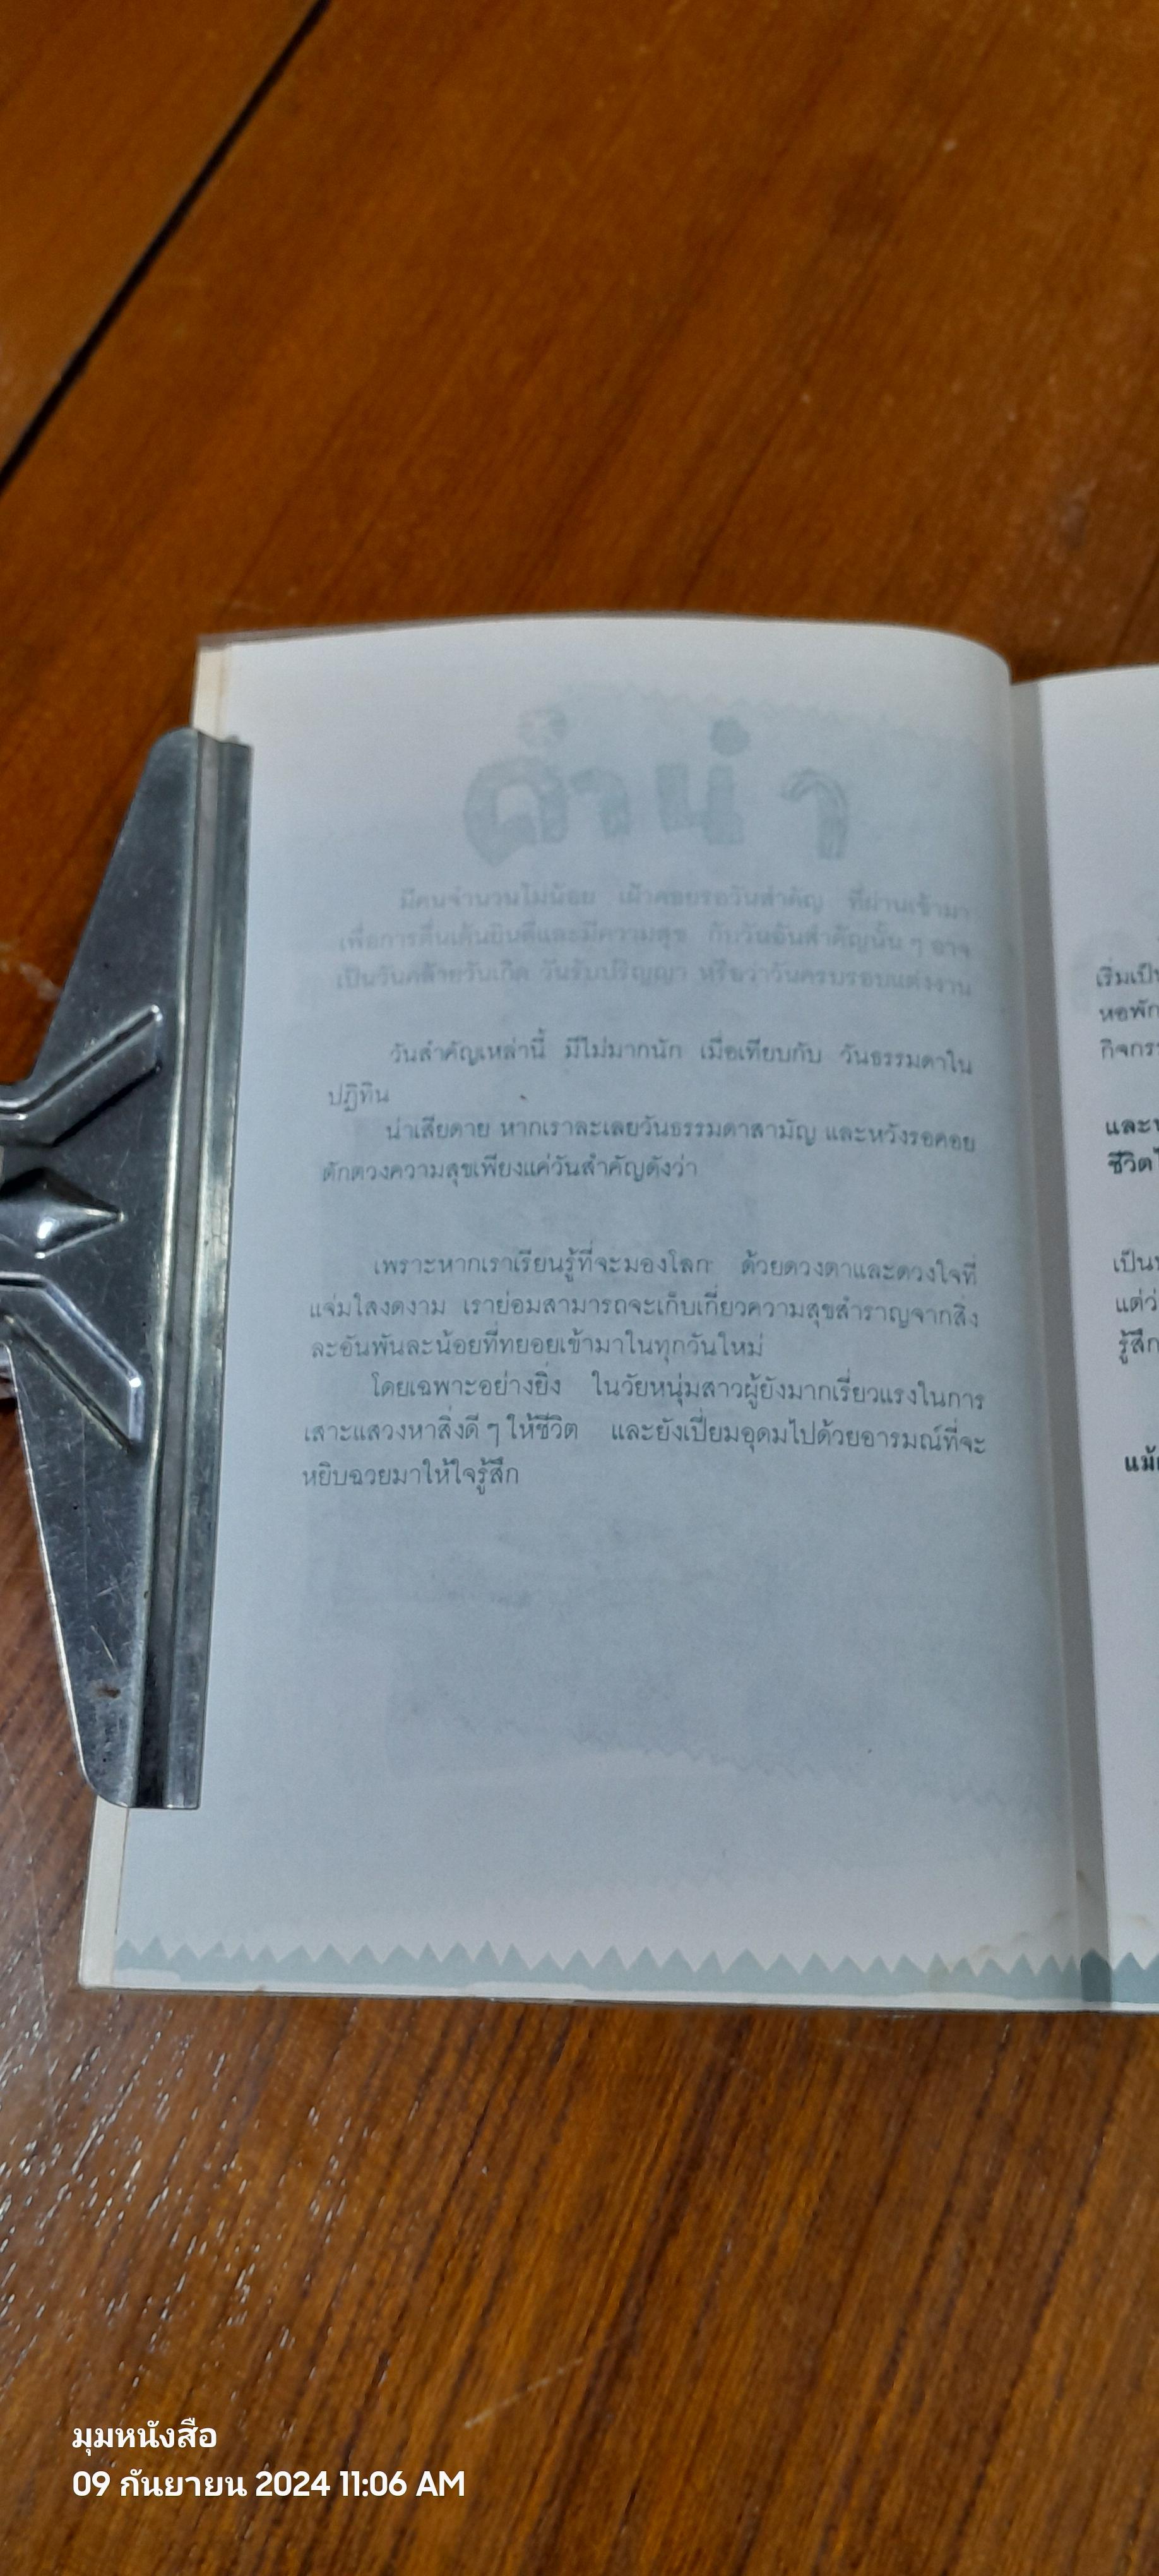 คำนำ
มีคนจำนวนไม่น้อย เฝ้าคอยรอวันสำคัญ ที่ผ่านเข้ามา
เพื่อการตื่นเต้นยินดีและมีความสุข กับวันอันสำคัญนั้น ๆ อาจ
เป็นวันคล้ายวันเกิด วันรับปริญญา หรือว่าวันครบรอบแต่งงาน
วันสำคัญเหล่านี้ มีไม่มากนัก เมื่อเทียบกับ วันธรรมดาใน
ปฏิทิน
น่าเสียดาย หากเราละเลยวันธรรมดาสามัญ และหวังรอคอย
ตักตวงความสุขเพียงแค่วันสำคัญดังว่า
เพราะหากเราเรียนรู้ที่จะมองโลก ด้วยดวงตาและดวงใจที่
แจ่มใสงดงาม เราย่อมสามารถจะเก็บเกี่ยวความสุขสำราญจากสิ่ง
ละอันพันละน้อยที่ทยอยเข้ามาในทุกวันใหม่
โดยเฉพาะอย่างยิ่ง ในวัยหนุ่มสาวผู้ยังมากเรี่ยวแรงในการ
เสาะแสวงหาสิ่งดี ๆ ให้ชีวิต และยังเปี่ยมอุดมไปด้วยอารมณ์ที่จะ
หยิบฉวยมาให้ใจรู้สึก
เริ่มเป็น
หอพัก
กิจกรร
และ
ชีวิต
เป็น
แต่ว่
รู้สึก
แม้
มุมหนังสือ
09 กันยายน 2024 11:06 AM